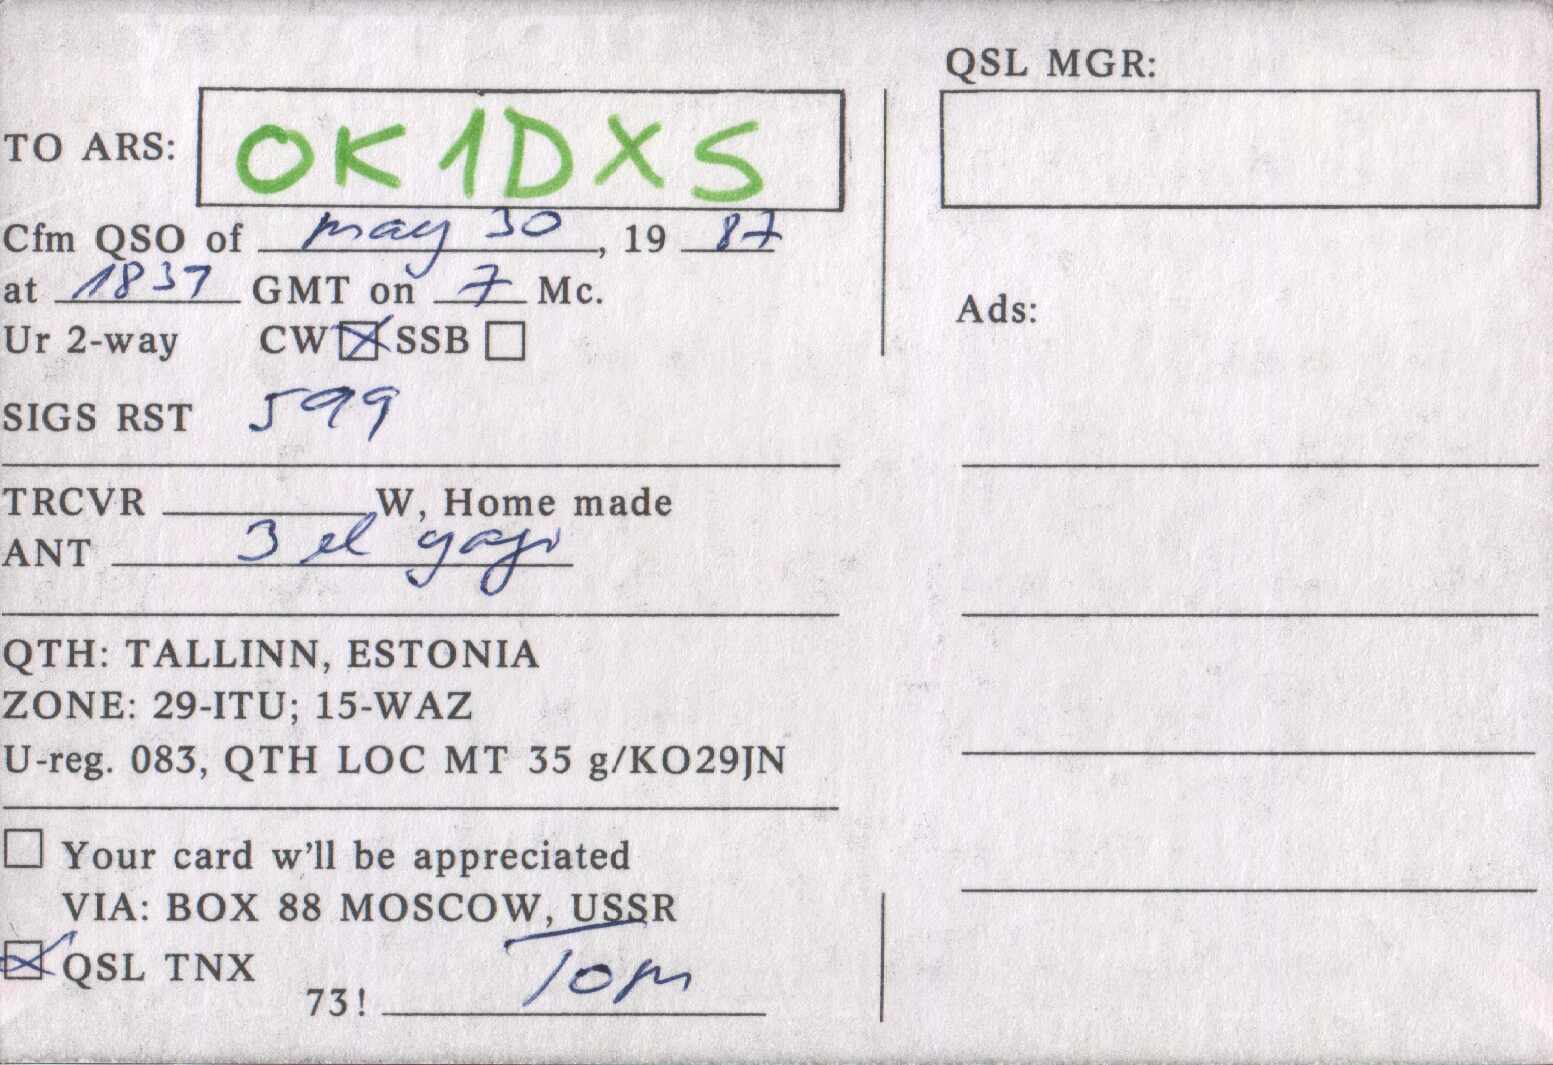 TO ARS: OK1DXS
Cfm QSO of may 30, 19 87
at 1837 GMT on 7 Mc.
Ur 2-way CW SSB
SIGS RST 599
TRCVR W, Home made
ANT 3 el yagi
QTH: TALLINN, ESTONIA
ZONE: 29-ITU; 15-WAZ
U-reg. 083, QTH LOC MT 35 g/KO29JN
Your card w'll be appreciated
VIA: BOX 88 MOSCOW, USSR
QSL TNX
73! Tom
QSL MGR:
Ads: